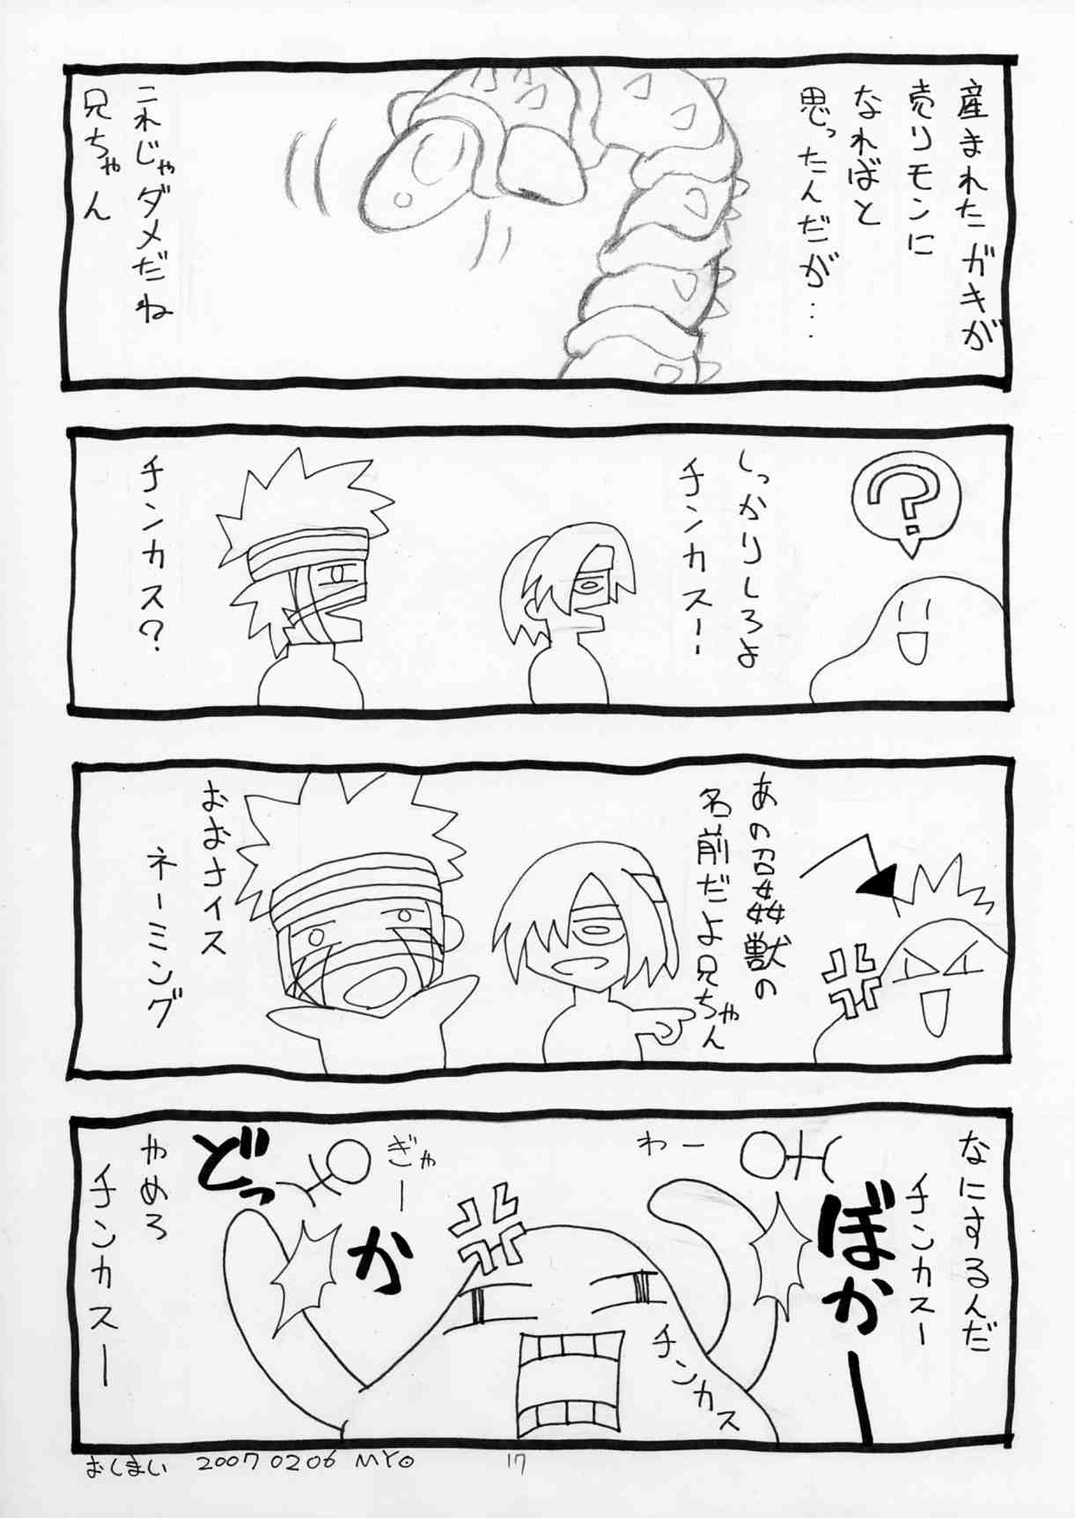 産まれたガキが
売りモンに
なればと
思ったんだが・・・
これじゃダメだね
兄ちゃん
?
しっかりしろよ
チンカスー
チンカス?
あの召姦獣の
名前だよ兄ちゃん
おおナイス
ネーミング
なにするんだ
チンカスー
ぼかー
わー
チンカス
ぎゃー
どっか
やめろ
チンカスー
おしまい 20070206 MYO
17